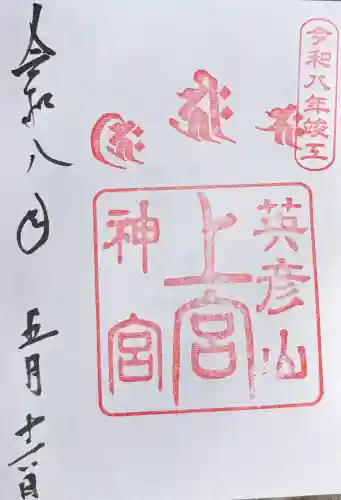 令和八年竣工
英彦山
上宮
神宮
令和八年
五月十六日